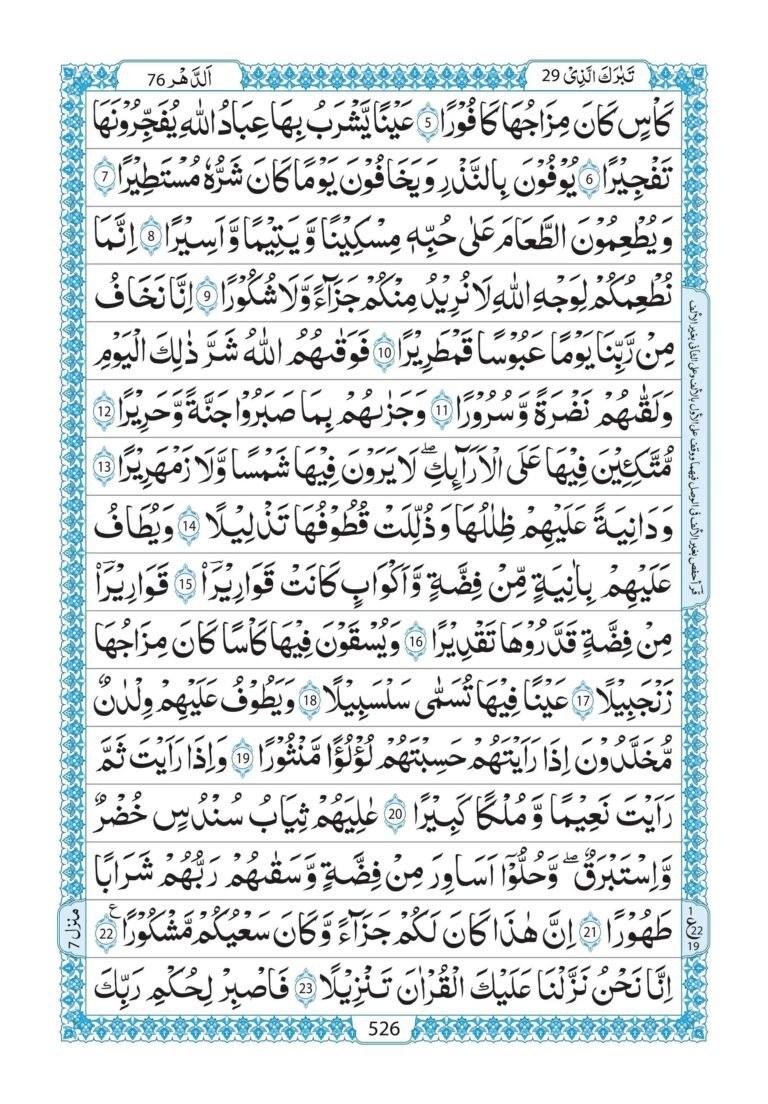 تَبٰرَكَ الَّذِىْ 29
اَلدَّهْر 76
كَاْسٍ كَانَ مِزَاجُهَا كَافُوْرًا ﴿5﴾ عَيْنًا يَّشْرَبُ بِهَا عِبَادُ اللّٰهِ يُفَجِّرُوْنَهَا
تَفْجِيْرًا ﴿6﴾ يُوْفُوْنَ بِالنَّذْرِ وَيَخَافُوْنَ يَوْمًا كَانَ شَرُّهٗ مُسْتَطِيْرًا ﴿7﴾
وَيُطْعِمُوْنَ الطَّعَامَ عَلٰى حُبِّهٖ مِسْكِيْنًا وَّيَتِيْمًا وَّاَسِيْرًا ﴿8﴾ اِنَّمَا
نُطْعِمُكُمْ لِوَجْهِ اللّٰهِ لَا نُرِيْدُ مِنْكُمْ جَزَآءً وَّلَا شُكُوْرًا ﴿9﴾ اِنَّا نَخَافُ
مِنْ رَّبِّنَا يَوْمًا عَبُوْسًا قَمْطَرِيْرًا ﴿10﴾ فَوَقٰىهُمُ اللّٰهُ شَرَّ ذٰلِكَ الْيَوْمِ
وَلَقّٰىهُمْ نَضْرَةً وَّسُرُوْرًا ﴿11﴾ وَجَزٰىهُمْ بِمَا صَبَرُوْا جَنَّةً وَّحَرِيْرًا ﴿12﴾
مُّتَّكِـِٕيْنَ فِيْهَا عَلَى الْاَرَآىِٕكِ ۖ لَا يَرَوْنَ فِيْهَا شَمْسًا وَّلَا زَمْهَرِيْرًا ﴿13﴾
وَدَانِيَةً عَلَيْهِمْ ظِلٰلُهَا وَذُلِّلَتْ قُطُوْفُهَا تَذْلِيْلًا ﴿14﴾ وَيُطَافُ
عَلَيْهِمْ بِاٰنِيَةٍ مِّنْ فِضَّةٍ وَّاَكْوَابٍ كَانَتْ قَوَارِيْرَا۟ ﴿15﴾ قَوَارِيْرَا۟
مِنْ فِضَّةٍ قَدَّرُوْهَا تَقْدِيْرًا ﴿16﴾ وَيُسْقَوْنَ فِيْهَا كَاْسًا كَانَ مِزَاجُهَا
زَنْجَبِيْلًا ﴿17﴾ عَيْنًا فِيْهَا تُسَمّٰى سَلْسَبِيْلًا ﴿18﴾ وَيَطُوْفُ عَلَيْهِمْ وِلْدَانٌ
مُّخَلَّدُوْنَ اِذَا رَاَيْتَهُمْ حَسِبْتَهُمْ لُؤْلُؤًا مَّنْثُوْرًا ﴿19﴾ وَاِذَا رَاَيْتَ ثَمَّ
رَاَيْتَ نَعِيْمًا وَّمُلْكًا كَبِيْرًا ﴿20﴾ عٰلِيَهُمْ ثِيَابُ سُنْدُسٍ خُضْرٌ
وَّاِسْتَبْرَقٌ ۖ وَّحُلُّوْٓا اَسَاوِرَ مِنْ فِضَّةٍ وَسَقٰىهُمْ رَبُّهُمْ شَرَابًا
طَهُوْرًا ﴿21﴾ اِنَّ هٰذَا كَانَ لَكُمْ جَزَآءً وَّكَانَ سَعْيُكُمْ مَّشْكُوْرًا ﴿22﴾ ع
اِنَّا نَحْنُ نَزَّلْنَا عَلَيْكَ الْقُرْاٰنَ تَنْزِيْلًا ﴿23﴾ فَاصْبِرْ لِحُكْمِ رَبِّكَ
قرأ حفص بغير الألف فى الوصل فيهما ووقف على الأول بالألف وعلى الثانى بغير الألف
ع 1 22 19
منزل 7
526